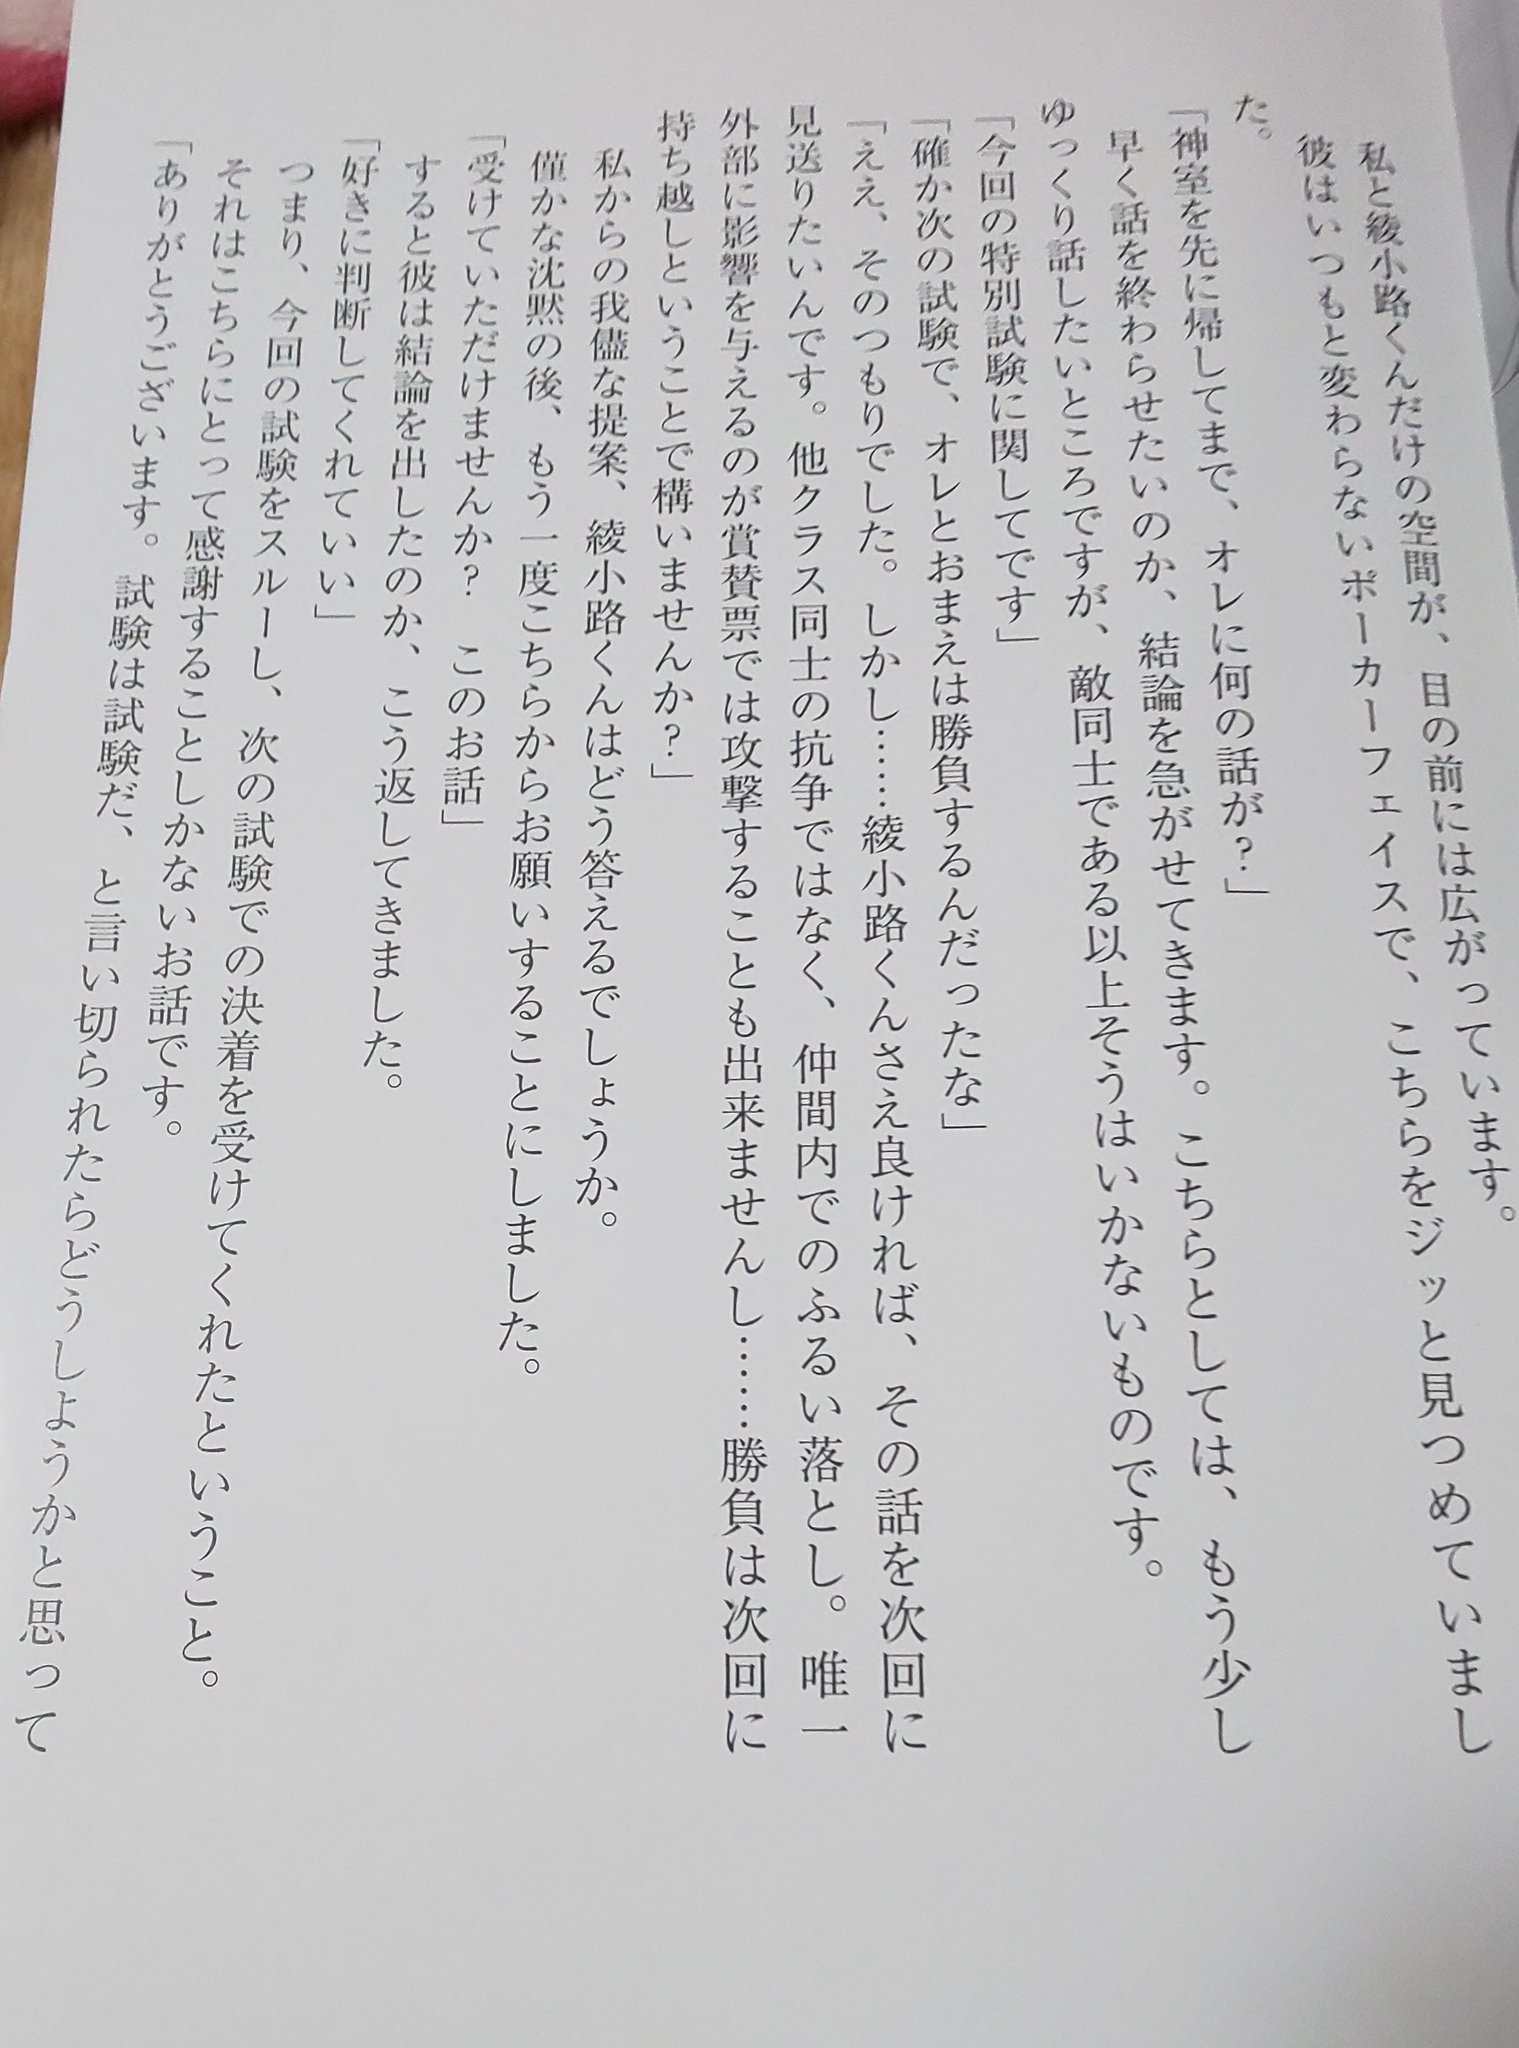 私と綾小路くんだけの空間が、目の前には広がっています。
彼はいつもと変わらないポーカーフェイスで、こちらをジッと見つめていまし
た。
「神室を先に帰してまで、オレに何の話が？」
早く話を終わらせたいのか、結論を急がせてきます。こちらとしては、もう少し
ゆっくり話したいところですが、敵同士である以上そうはいかないものです。
「今回の特別試験に関してです」
「確か次の試験で、オレとおまえは勝負するんだったな」
「ええ、そのつもりでした。しかし……綾小路くんさえ良ければ、その話を次回に
見送りたいんです。他クラス同士の抗争ではなく、仲間内でのふるい落とし。唯一
外部に影響を与えるのが賞賛票では攻撃することも出来ませんし……勝負は次回に
持ち越しということで構いませんか？」
私からの我儘な提案、綾小路くんはどう答えるでしょうか。
僅かな沈黙の後、もう一度こちらからお願いすることにしました。
「受けていただけませんか？　このお話」
すると彼は結論を出したのか、こう返してきました。
「好きに判断してくれていい」
つまり、今回の試験をスルーし、次の試験での決着を受けてくれたということ。
それはこちらにとって感謝することしかないお話です。
「ありがとうございます。試験は試験だ、と言い切られたらどうしようかと思って